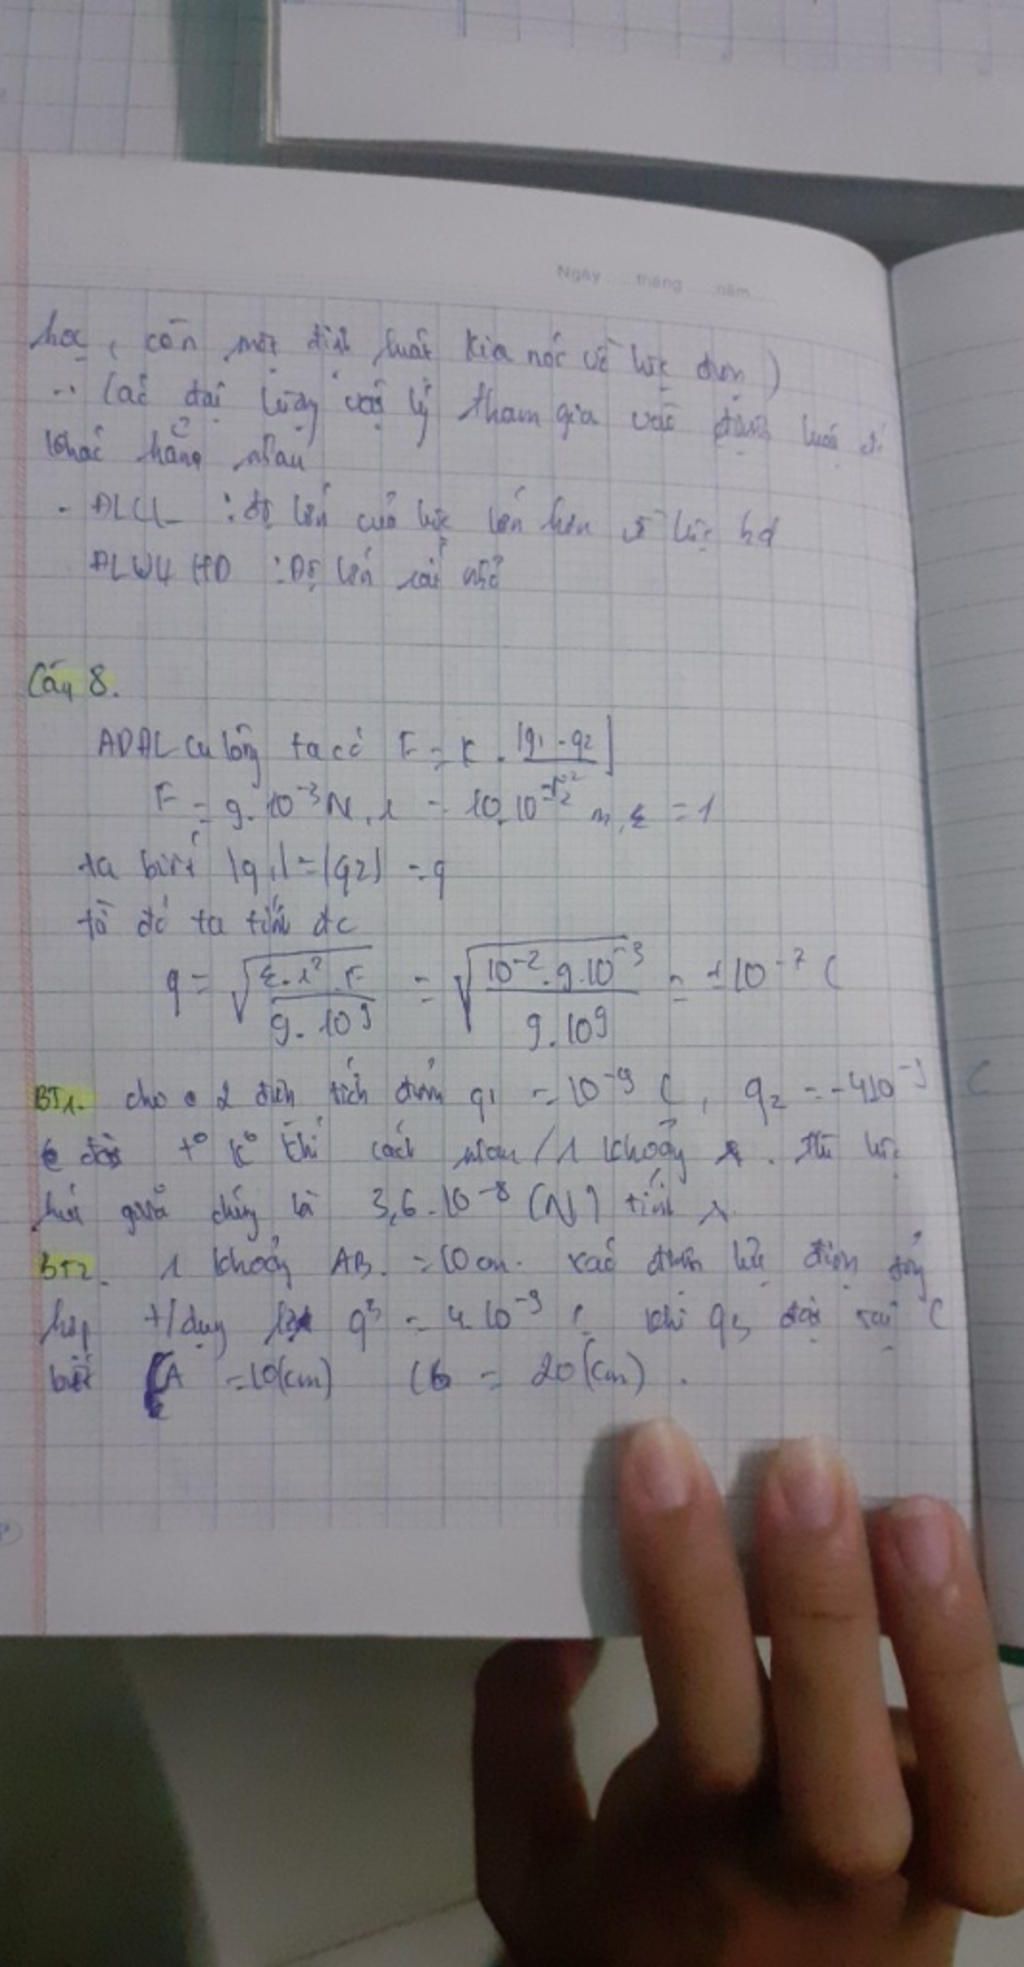 Ngày tháng năm
học, còn một định luật kia nói về lực điện)
Các đại lượng vật lý tham gia vào định luật
khác hẳn nhau
- ĐLCL : độ lớn của lực lớn hơn lực hd
ĐLVV HD : Độ lớn rất nhỏ
Câu 8.
ADĐL Cu lông ta có F = k . |q1 . q2|
r²
F = 9.10⁻³ N, r = 10.10⁻² m, ε = 1
ta biết |q1| = |q2| = q
từ đó ta tính đc
q = √(ε.r².F / 9.10⁹) = √(10⁻².9.10⁻³ / 9.10⁹) = ±10⁻⁷ C
BT1. cho 2 điện tích điểm q1 = 10⁻⁹ C, q2 = -4.10⁻⁹ C
đặt to ko khí cách nhau 1 khoảng r. thì lực
hút giữa chúng là 3,6.10⁻⁸ (N) tính r
BT2. 1 khoảng AB. = 10 cm. xác định lực điện tổng
hợp t/dụng q3 = 4.10⁻⁹ C khi q3 đặt tại C
biết CA = 10(cm) CB = 20(cm).